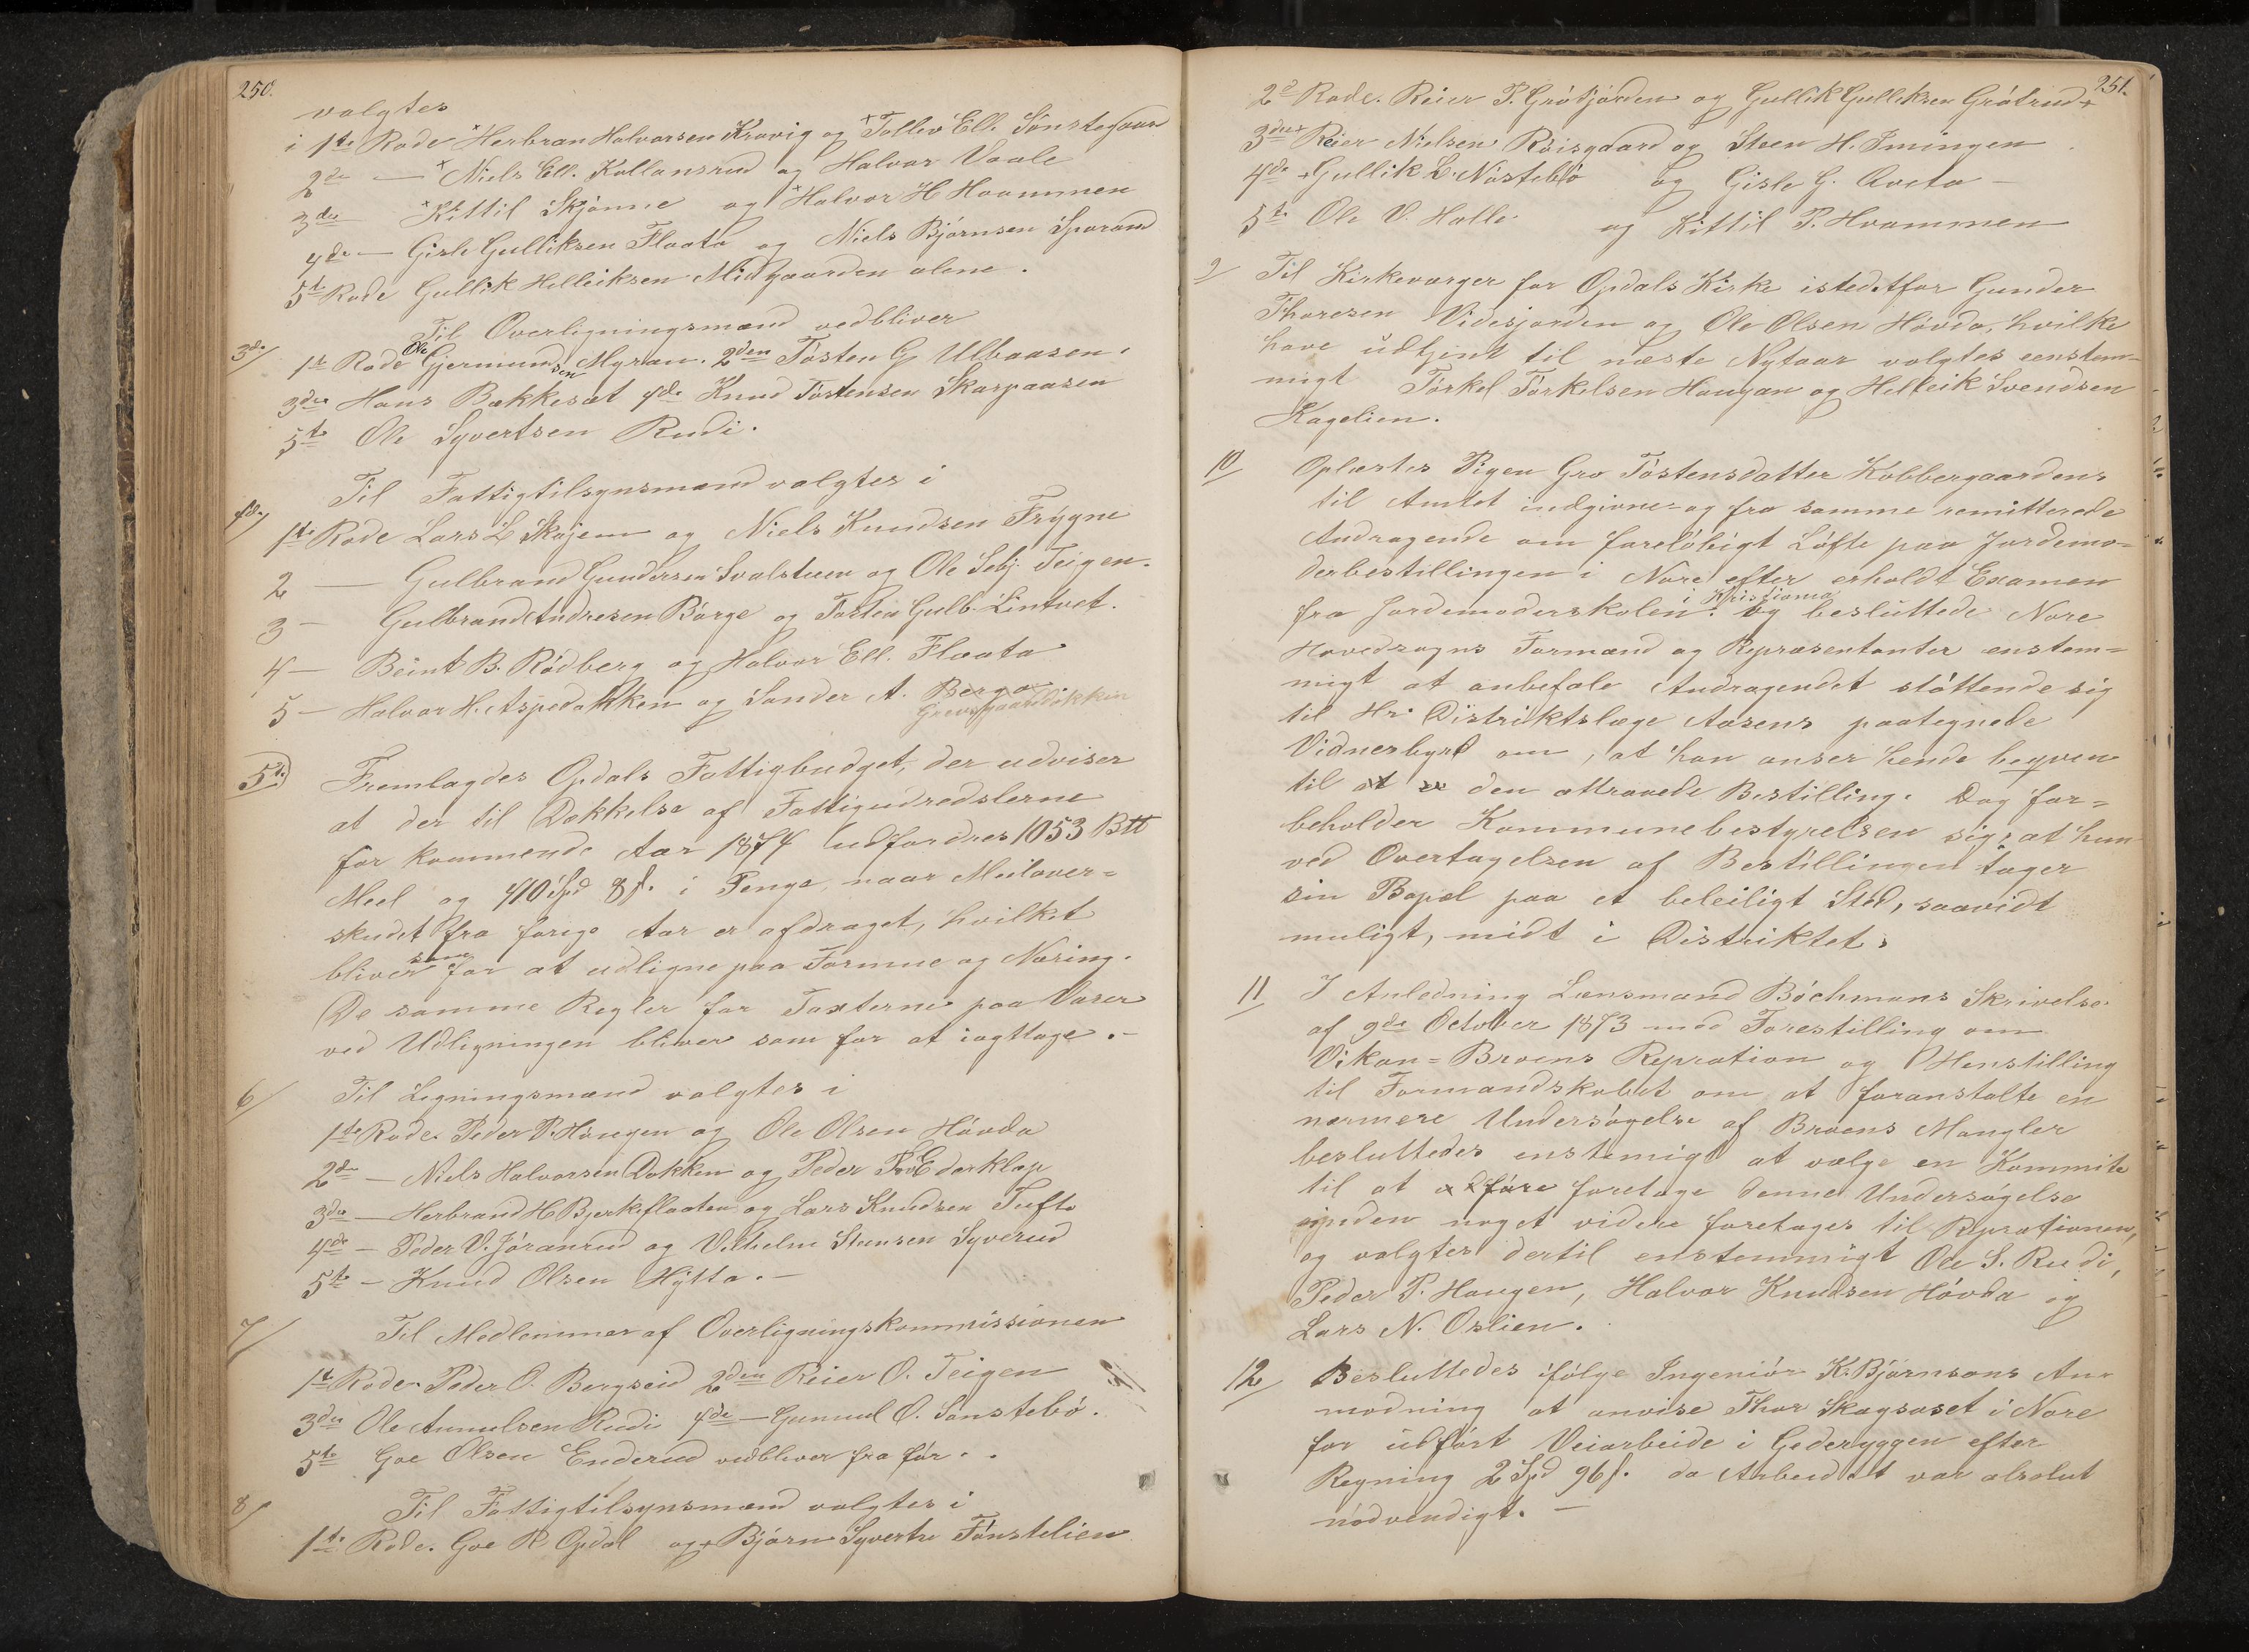 250.
valgtes
i 1ste Rode ×Herbran Halvorsen Kravig og ×Tollev Ell. Sønstegaar
2de — ×Niels Ell. Kollansrud og Halvor Vaale
3die ×Kittil Skjønne og ×Halvor H Hvammen
4de — Gisle Gulliksen Flaata og Niels Bjørnsen Sporand
5te Rode Gullik Helleiksen Midgaarden alene.
3de/ Til Overligningsmænd vedbliver
1ste Rode Ole Gjermundsen Myran. 2den Tosten G Ulbaasen.
3die Hans Bakkesæt 4de Knud Tostensen Skarpaasen
5te Ole Syvertsen Rudi.
Til Fattigtilsynsmænd valgtes i
4de/
1ste Rode Lars L Skajem og Niels Knudsen Frygne
2 — Gulbrand Gundersen Svalstuen og Ole Sebj. Teigen.
3 — Gulbrand Andresen Børge og Tosten Gulb. Lintvet.
4 — Beint B. Rødberg og Halvor Ell. Flaata
5 — Halvor H. Aspedokken og Sander A. Berga.
Grevsgaardokken
5te) Fremlagdes Opdals Fattigbudget, der udviser
at der til Dækkelse af Fattigudredslerne
for kommende Aar 1874 udfordres 1053 Btt
Meel og 410 Spd 8 s. i Penge, naar Meelover=
skudet fra forige Aar er afdraget, hvilket
bliver som for at udligne paa Formue og Næring.
De samme Regler for Taxterne paa Varer
ved Udligningen bliver som for at iagttage. –
6/ Til Ligningsmænd valgtes i
1ste Rode. Peder P. Haugen og Ole Olsen Hóvda
2den — Niels Halvorsen Dokken og Peder P. Ederklep
3die — Herbrand H Bjerkeflaaten og Lars Knudsen Tufte
4de — Peder V. Jóranrud og Vilhelm Steensen Syverud
5te — Knud Olsen Hytta. —
7/ Til Medlemmer af Overligningskommissionen
1ste Rode. Peder O. Bergseid 2den Reier O. Teigen
3die Ole Amundsen Rudi 4de — Gunnul O. Sønstebó.
5te Goe Olsen Enderud vedbliver fra før..
8/ Til Fattigtilsynsmænd valgtes i
1ste Rode. Goe R Opdal og × Bjørn Syverts Tønstelien
251.
2d Rode. Reier P. Grótjorden og Gullik Gulliksen Grótrud ×
3die× Reier Nielsen Róisgaard og Steen H. Imingen
4de × Gullik L. Nóstebó og Gisle G. Aveta —
5te Ole V. Halle og Kittil P. Hvammen
9/ Til Kirkeværger for Opdals Kirke istedetfor Gunder
Thoresen Videsjorden og Ole Olsen Hóvda, hvilke
have udtjent til næste Nytaar valgtes eenstem-
migt Torkel Torkelsen Haugan og Helleik Svendsen
Kagelien.
10/ Oplæstes Pigen Gro Tostensdatter Kobbergaardens
til Amtet indgivne og fra samme remitterede
Andragende om foreløbigt Løfte paa Jordemo=
derbestillingen i Nore efter erholdt Examen
fra Jordemoderskolen i Kristiania. og besluttede Nore
Hovedsogns Formænd og Repræsentanter enstem=
migt at anbefale Andragendet støttende sig
til Hr. Distriktslæge Aasens paategnede
Vidnesbyrd om, at han anser hende beqvem
til at den attraaede Bestilling. Dog for=
beholder Kommunebestyrelsen sig, at hun
ved Overtagelsen af Bestillingen tager
sin Bopæl paa et beleiligt Sted, saavidt
muligt, midt i Distriktet.
11/ I Anledning Lænsmand Bóchmans Skrivelse
af 9de October 1873 med Forestilling om
Vikan=Broens Repration og Henstilling
til Formandskabet om at foranstalte en
nærmere Undersøgelse af Broens Mangler
besluttedes enstemigt at vælge en Kommite
til at foretage denne Undersøgelse
inden noget videre foretages til Reprationen,
og valgtes dertil enstemmigt Ole S. Rudi,
Peder P. Haugen, Halvor Knudsen Hóvda og
Lars N. Oslien.
12/ Besluttedes ifølge Ingeniør K. Bjørnsons An-
modning at anvise Thor Skogsaset i Nore
for udført Veiarbeide i Gederyggen efter
Regning 2 Spd 96 s. da Arbeidet var absolut
nødvendigt. —